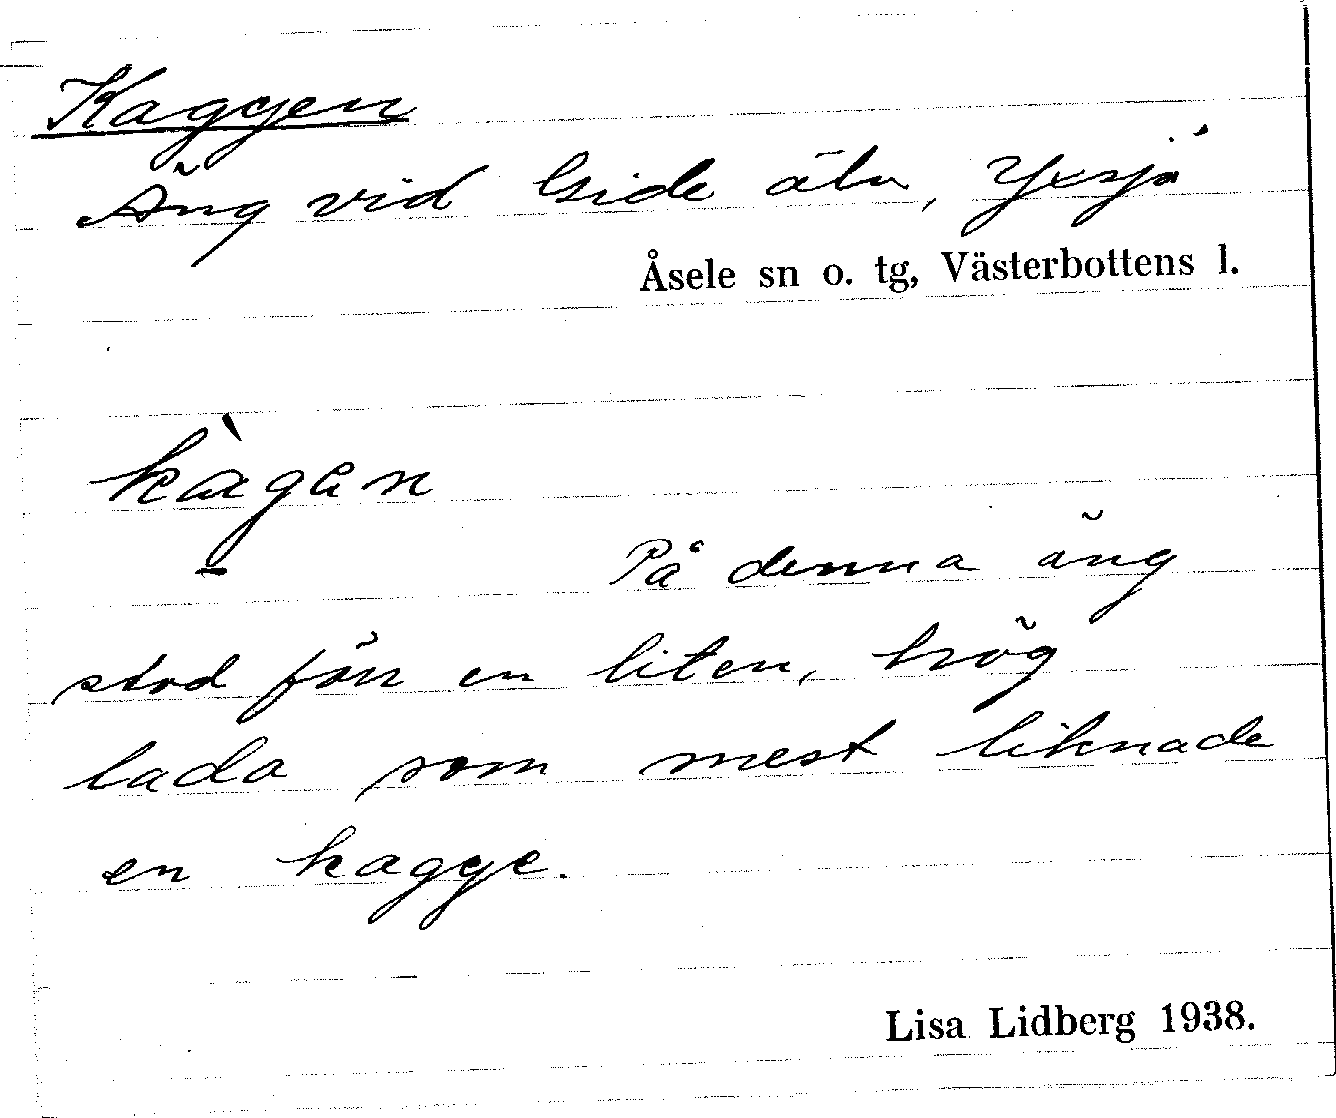 Kaggen
Äng vid Gide älv, Yxsjö
Åsele sn o. tg, Västerbottens l.
kàgen
På denna äng
stod förr en liten, hög
lada som mest liknade
en kagge.
Lisa Lidberg 1938.